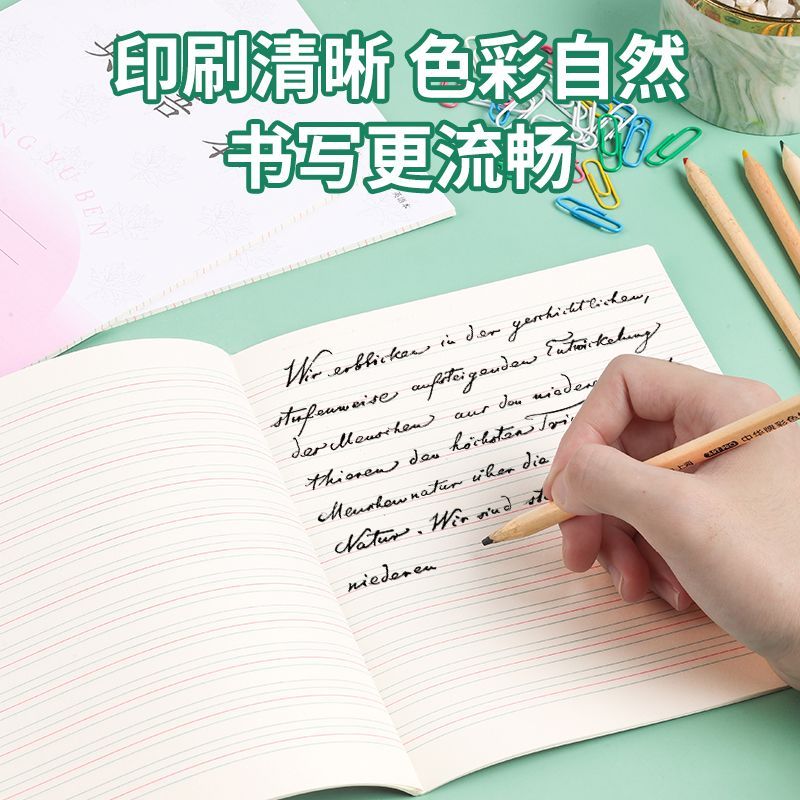 印刷清晰 色彩自然
书写更流畅
英语
YING YU BEN
英语本
Wir erblicken in der geschichtlichen,
stufenweise aufsteigenden Entwickelung
der Menschen aus den niederen
thieren den höchsten Tri
Menschennatur über die
Natur. Wir sind
niederen
中华牌彩色
上海